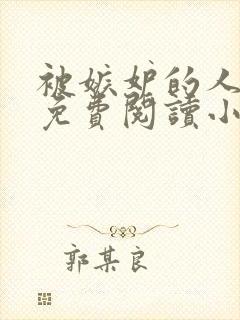 被嫉妒的人
免費閱讀小
郭某良